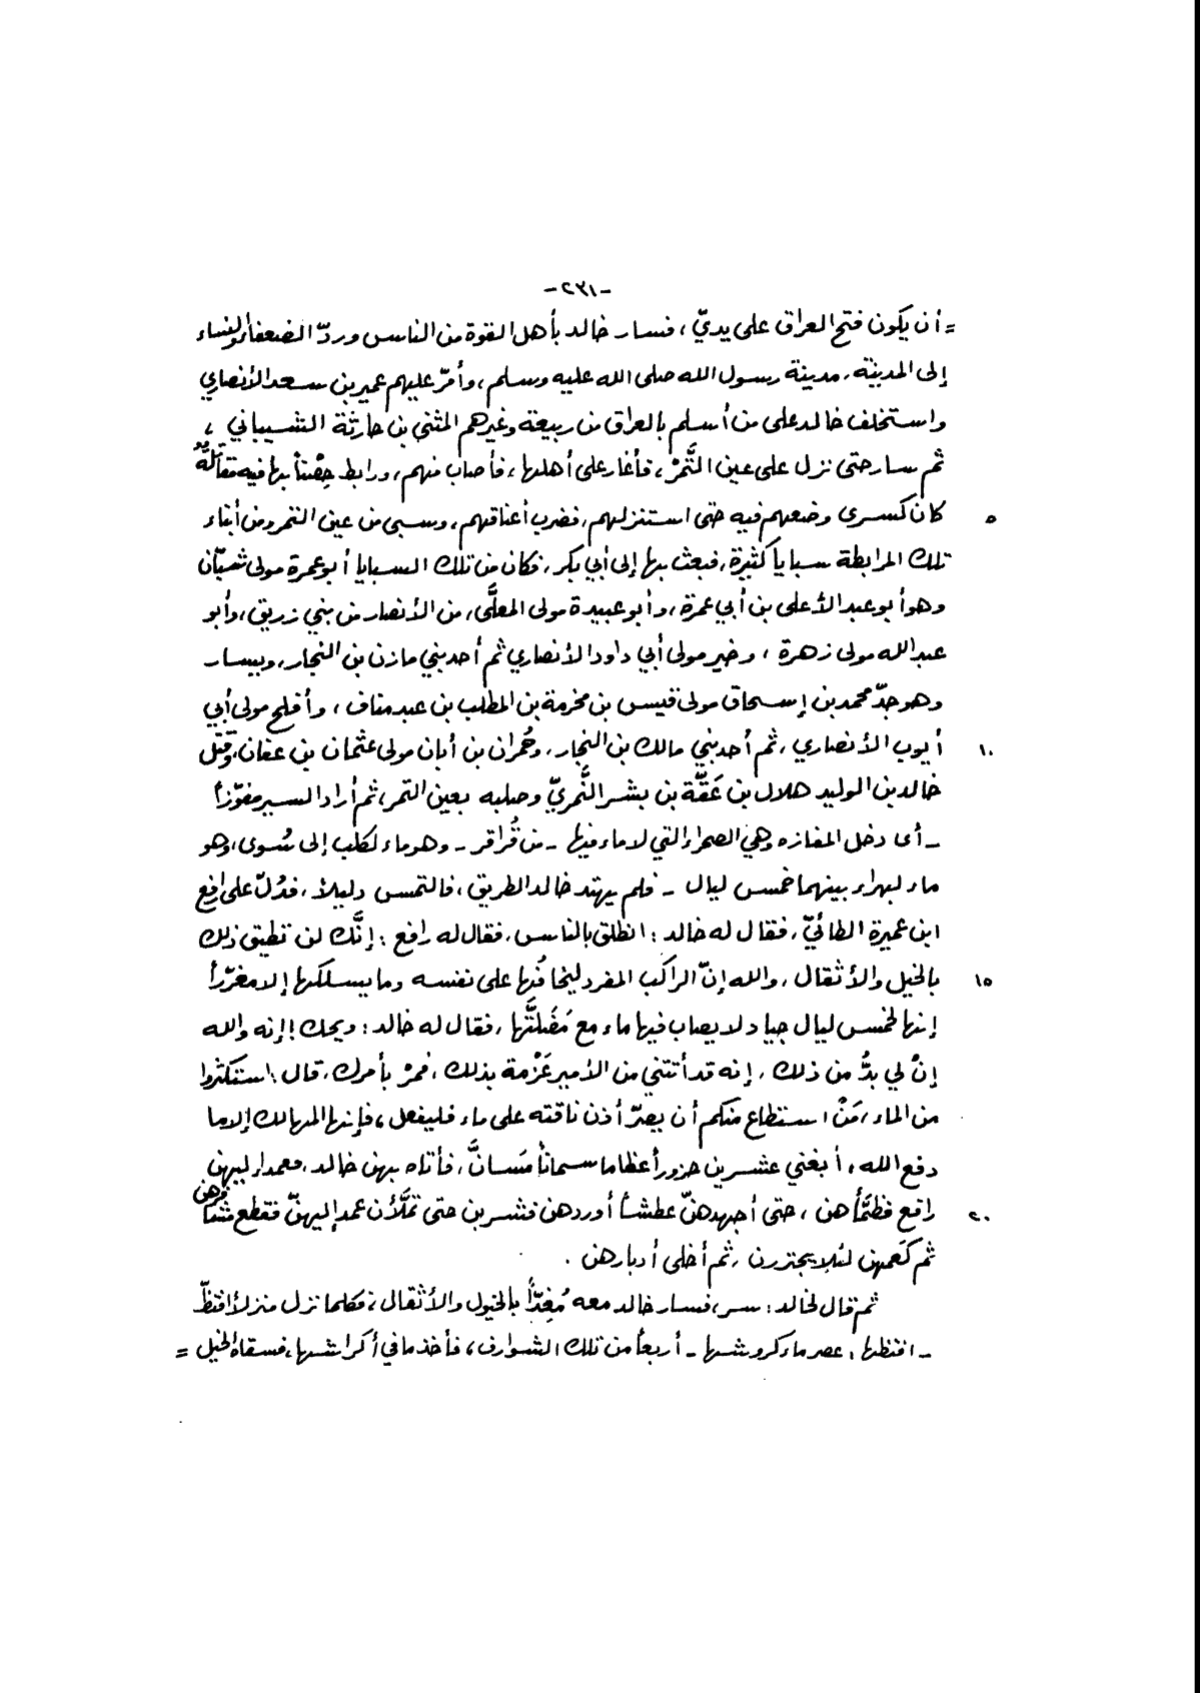 -٢٣١-
= أن يكون فتح العراق على يديّ، فسار خالد بأهل القوة من الناس وردّ الضعفاء والنساء
إلى المدينة، مدينة رسول الله صلى الله عليه وسلم، وأمّر عليهم عمير بن سعد الأنصاري
واستخلف خالد على من أسلم بالعراق من ربيعة وغيرهم المثنى بن حارثة الشيباني،
ثم سار حتى نزل على عين التَّمْر، فأغار على أهلها، فأصاب منهم، ورابط حِصْناً بها فيه مقاتلةٌ
٥ كان كسرى وضعهم فيه حتى استنزلهم، فضرب أعناقهم، وسبى من عين التمر ومن أبناء
تلك المرابطة سبايا كثيرة، فبعث بها إلى أبي بكر، فكان من تلك السبايا أبو عمرة مولى شبّان
وهو أبو عبد الأعلى بن أبي عمرة، وأبو عبيدة مولى المعلَّى، من الأنصار من بني زريق، وأبو
عبد الله مولى زهرة، وخير مولى أبي داود الأنصاري ثم أحد بني مازن بن النجار، ويسار
وهو جدّ محمد بن إسحاق مولى قيس بن مخرمة بن المطلب بن عبد مناف، وأفلح مولى أبي
١٠ أيوب الأنصاري، ثم أحد بني مالك بن النجار، وحُمران بن أبان مولى عثمان بن عفان، وقتل
خالد بن الوليد هلال بن عَقّة بن بشر النَّمريّ وصلبه بعين التمر، ثم أراد السير مفوّزاً
- أى دخل المفازه وهي الصحراء التي لا ماء فيها - من قُراقر - وهو ماء لكلب إلى سُوى، وهو
ماء لبهراء بينهما خمس ليال - فلم يهتد خالد الطريق، فالتمس دليلاً، فدُلّ على رافع
ابن عميرة الطائيّ، فقال له خالد: انطلق بالناس، فقال له رافع: إنَّك لن تطيق ذلك
١٥ بالخيل والأثقال، والله إنّ الراكب المفرد ليخافُها على نفسه وما يسلكها إلا مغرّراً
إنها لخمس ليال جياد لا يصاب فيها ماء مع مَضَلَّتها، فقال له خالد: ويحك! إنه والله
إنْ لي بدٌّ من ذلك، إنه قد أتتني من الأمير عَزْمة بذلك، فمرْ بأمرك، قال: استكثروا
من الماء، مَنْ استطاع منكم أن يصرّ أذن ناقته على ماء فليفعل، فإنها المهالك إلا ما
دفع الله، أبغني عشرين جزوراً عظاما سماناً مَسانَّ، فأتاه بهن خالد، فعمد إليهن
٢٠ رافع فظمَّأهن، حتى أجهدهنّ عطشاً أوردهن فشربن حتى تملَّأن عمد إليهنّ فقطع مشافرهن
ثم كَعمهن لئلا يجتررن، ثم أخلى أدبارهن.
ثم قال لخالد: سر، فسار خالد معه مُغِذّاً بالخيول والأثقال، فكلما نزل منزلاً افتظّ
- افتظها: عصر ماء كروشها - أربعاً من تلك الشوارف، فأخذ ما في أكراشها، فسقاه الخيل =